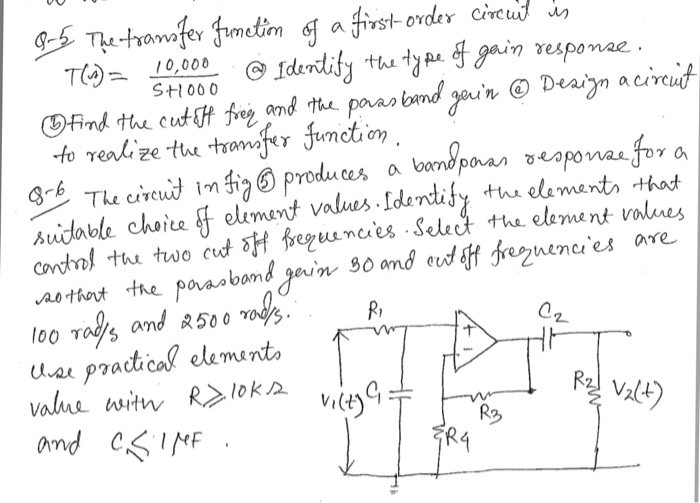 Q-5 The transfer function of a first-order circuit is
T(s) = 10,000 / S+1000 @ Identify the type of gain response.
ⓑ Find the cutoff freq and the passband gain ⓒ Design a circuit
to realize the transfer function.
Q-6 The circuit in fig ⑤ produces a bandpass response for a
suitable choice of element values. Identify the elements that
control the two cut off frequencies. Select the element values
so that the passband gain 30 and cut off frequencies are
100 rad/s and 2500 rad/s.
Use practical elements
value with R ≥ 10KΩ
and C ≤ 1 µF .
R1
C2
+
-
V1(t)
C1
R3
R4
R2
V2(t)